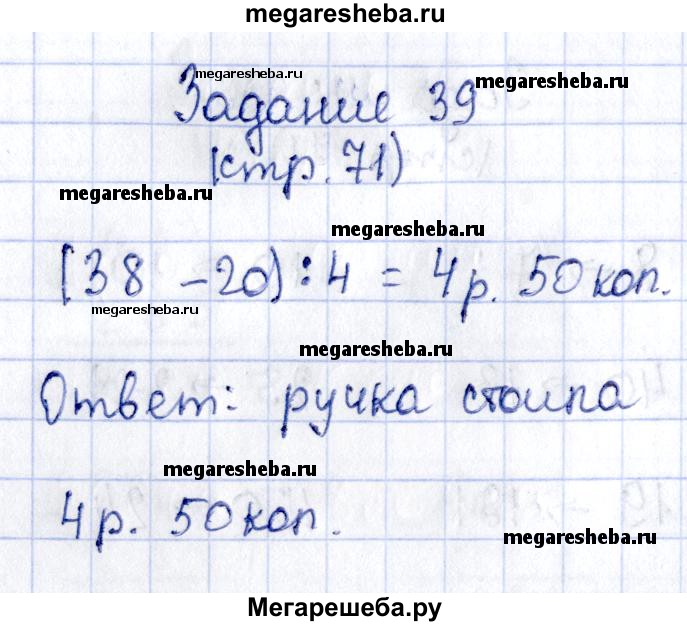 megaresheba.ru
megaresheba.ru
Задание 39
megaresheba.ru
(стр. 71)
megaresheba.ru
megaresheba.ru
(38 - 20) : 4 = 4 р. 50 коп.
megaresheba.ru
megaresheba.ru
Ответ: ручка стоила
megaresheba.ru
4 р. 50 коп.
megaresheba.ru
Мегарешеба.ру